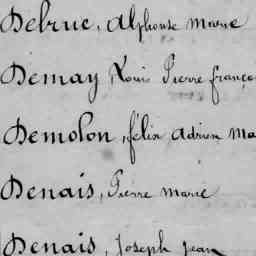 Debruc, Alphonse Marie
Demay Louis Pierre França
Demolon, félix Adrien Ma
Denais, Pierre Marie
Denais, Joseph Jean